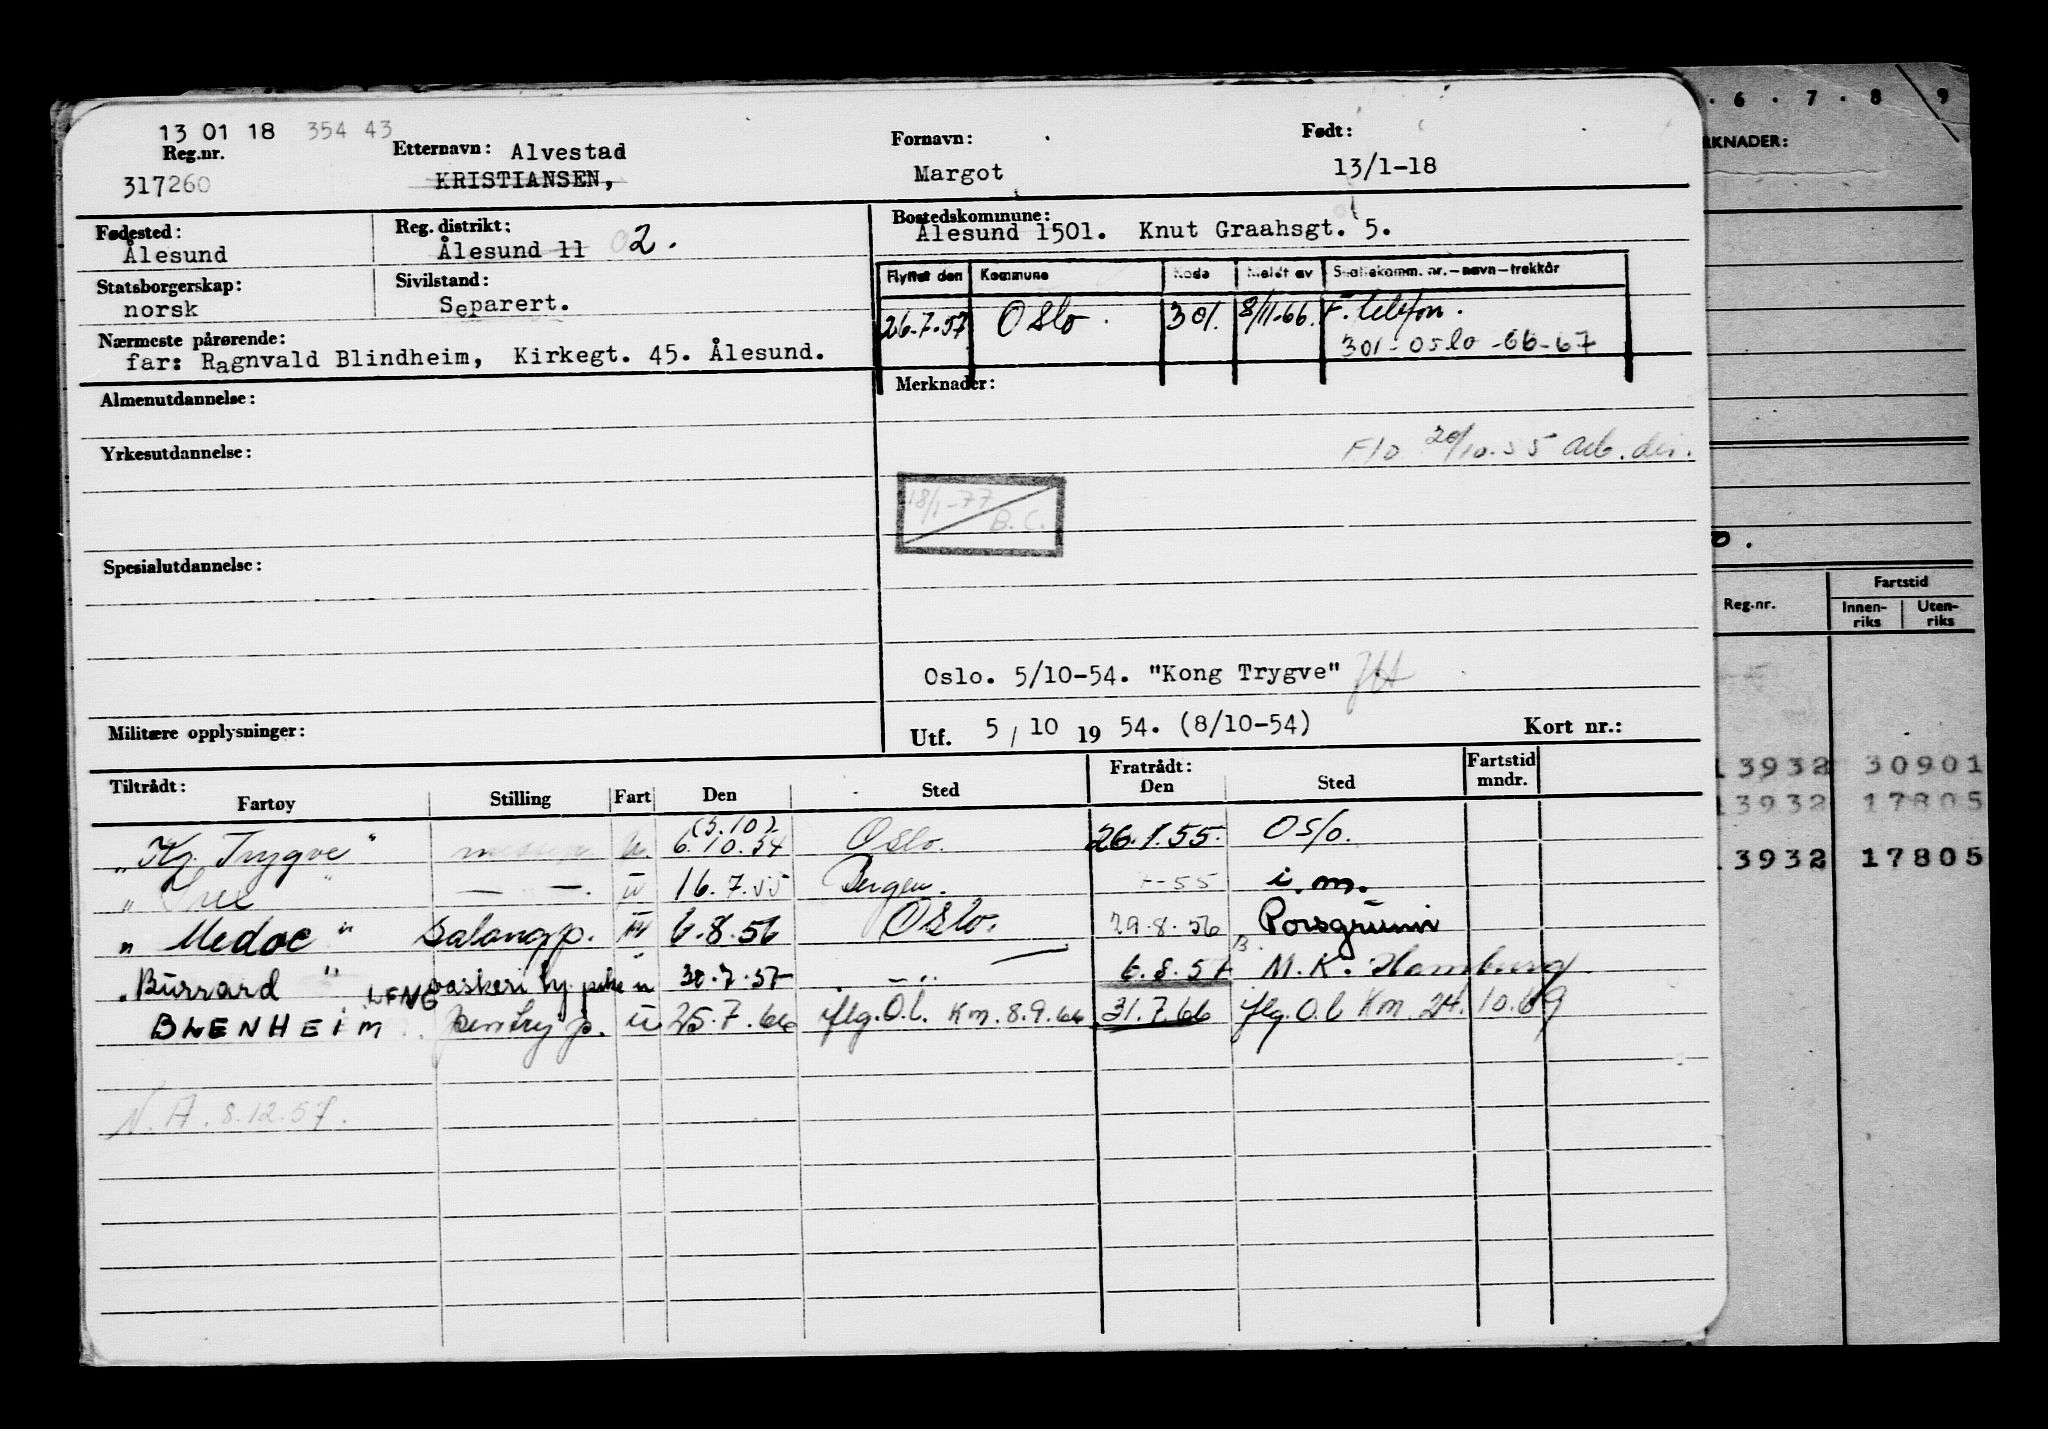 13 01 18 354 43
Reg.nr.
317260
Etternavn: Alvestad
KRISTIANSEN,
Fornavn:
Margot
Født:
13/1-18
Fødested:
Ålesund
Reg. distrikt:
Ålesund 11 02.
Bostedskommune:
Ålesund 1501. Knut Graahsgt. 5.
Statsborgerskap:
norsk
Sivilstand:
Separert.
Flyttet den Kommune Kode Meldt av Skattekomm. nr.-navn-trekkår
26.7.57 Oslo. 301. 8/11-66. F. telefon.
301-Oslo-66-67
Nærmeste pårørende:
far: Ragnvald Blindheim, Kirkegt. 45. Ålesund.
Almenutdannelse:
Merknader:
Yrkesutdannelse:
20/10.55 arb. dir.
18/1-77
B.C.
Spesialutdannelse:
Oslo. 5/10-54. "Kong Trygve"
Militære opplysninger:
Utf. 5 / 10 19 54. (8/10-54) Kort nr.:
Tiltrådt:
Fartøy Stilling Fart Den Sted
Fratrådt:
Den Sted
Fartstid
mndr.
(5.10)
"Kg. Trygve" u. 6.10.54 Oslo. 26.1.55. Oslo.
" " — — . 16.7.55 Bergen. -55 i.m.
" Medoc " Salongp. 6.8.56 Oslo. 29.8.56 Porsgrunn
"Burrard " vaskeri hj. pike u 30.7.57 - " - 6.8.57 M.K. Hamburg
BLENHEIM LFNG pentry p. u 25.7.66 flg. O.l. Km. 8.9.66 31.7.66 flg. O.l Km. 24.10.69
N.A. 8.12.57.
. 6 . 7 . 8 9
RKNADER:
Reg.nr.
Fartstid
Innen-
riks
Uten-
riks
13932 30901
13932 17805
3932 17805